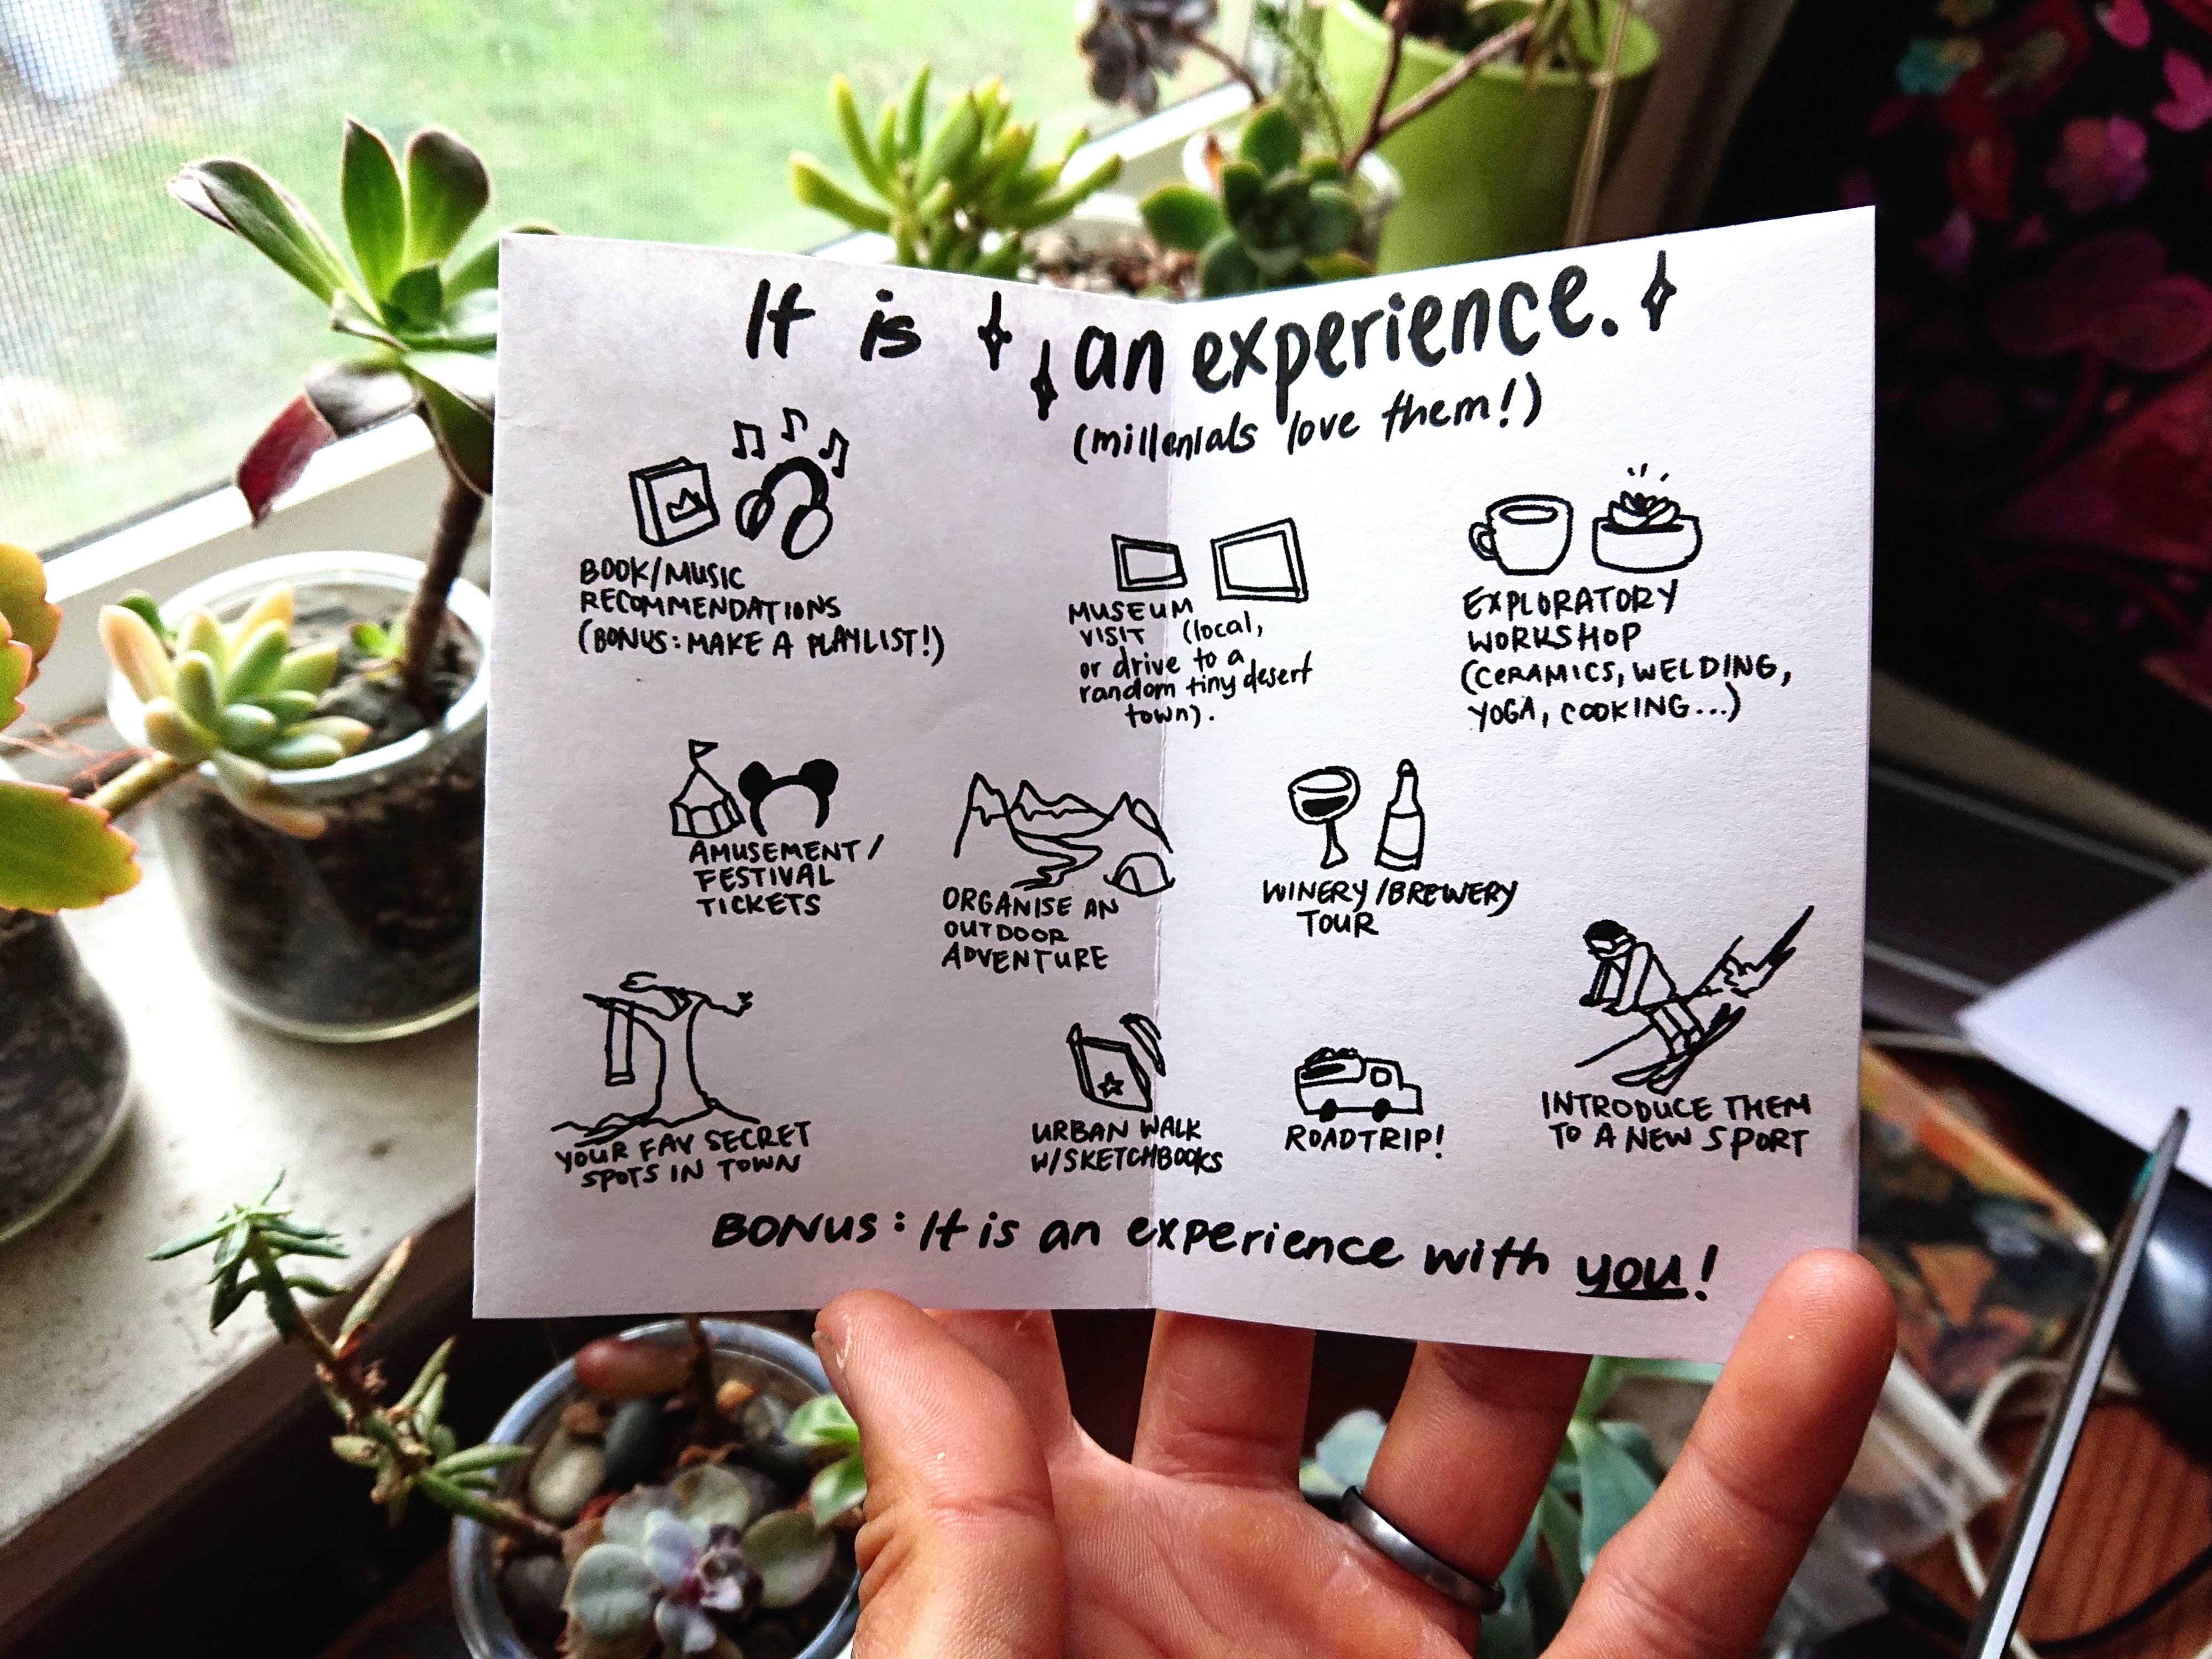 It is an experience.
(millenials love them!)
BOOK/MUSIC
RECOMMENDATIONS
(BONUS: MAKE A PLAYLIST!)
MUSEUM
VISIT (local,
or drive to a
random tiny desert
town).
EXPLORATORY
WORKSHOP
(CERAMICS, WELDING,
YOGA, COOKING...)
AMUSEMENT/
FESTIVAL
TICKETS
ORGANISE AN
OUTDOOR
ADVENTURE
WINERY/BREWERY
TOUR
YOUR FAV SECRET
SPOTS IN TOWN
URBAN WALK
W/SKETCHBOOKS
ROADTRIP!
INTRODUCE THEM
TO A NEW SPORT
BONUS: It is an experience with you!